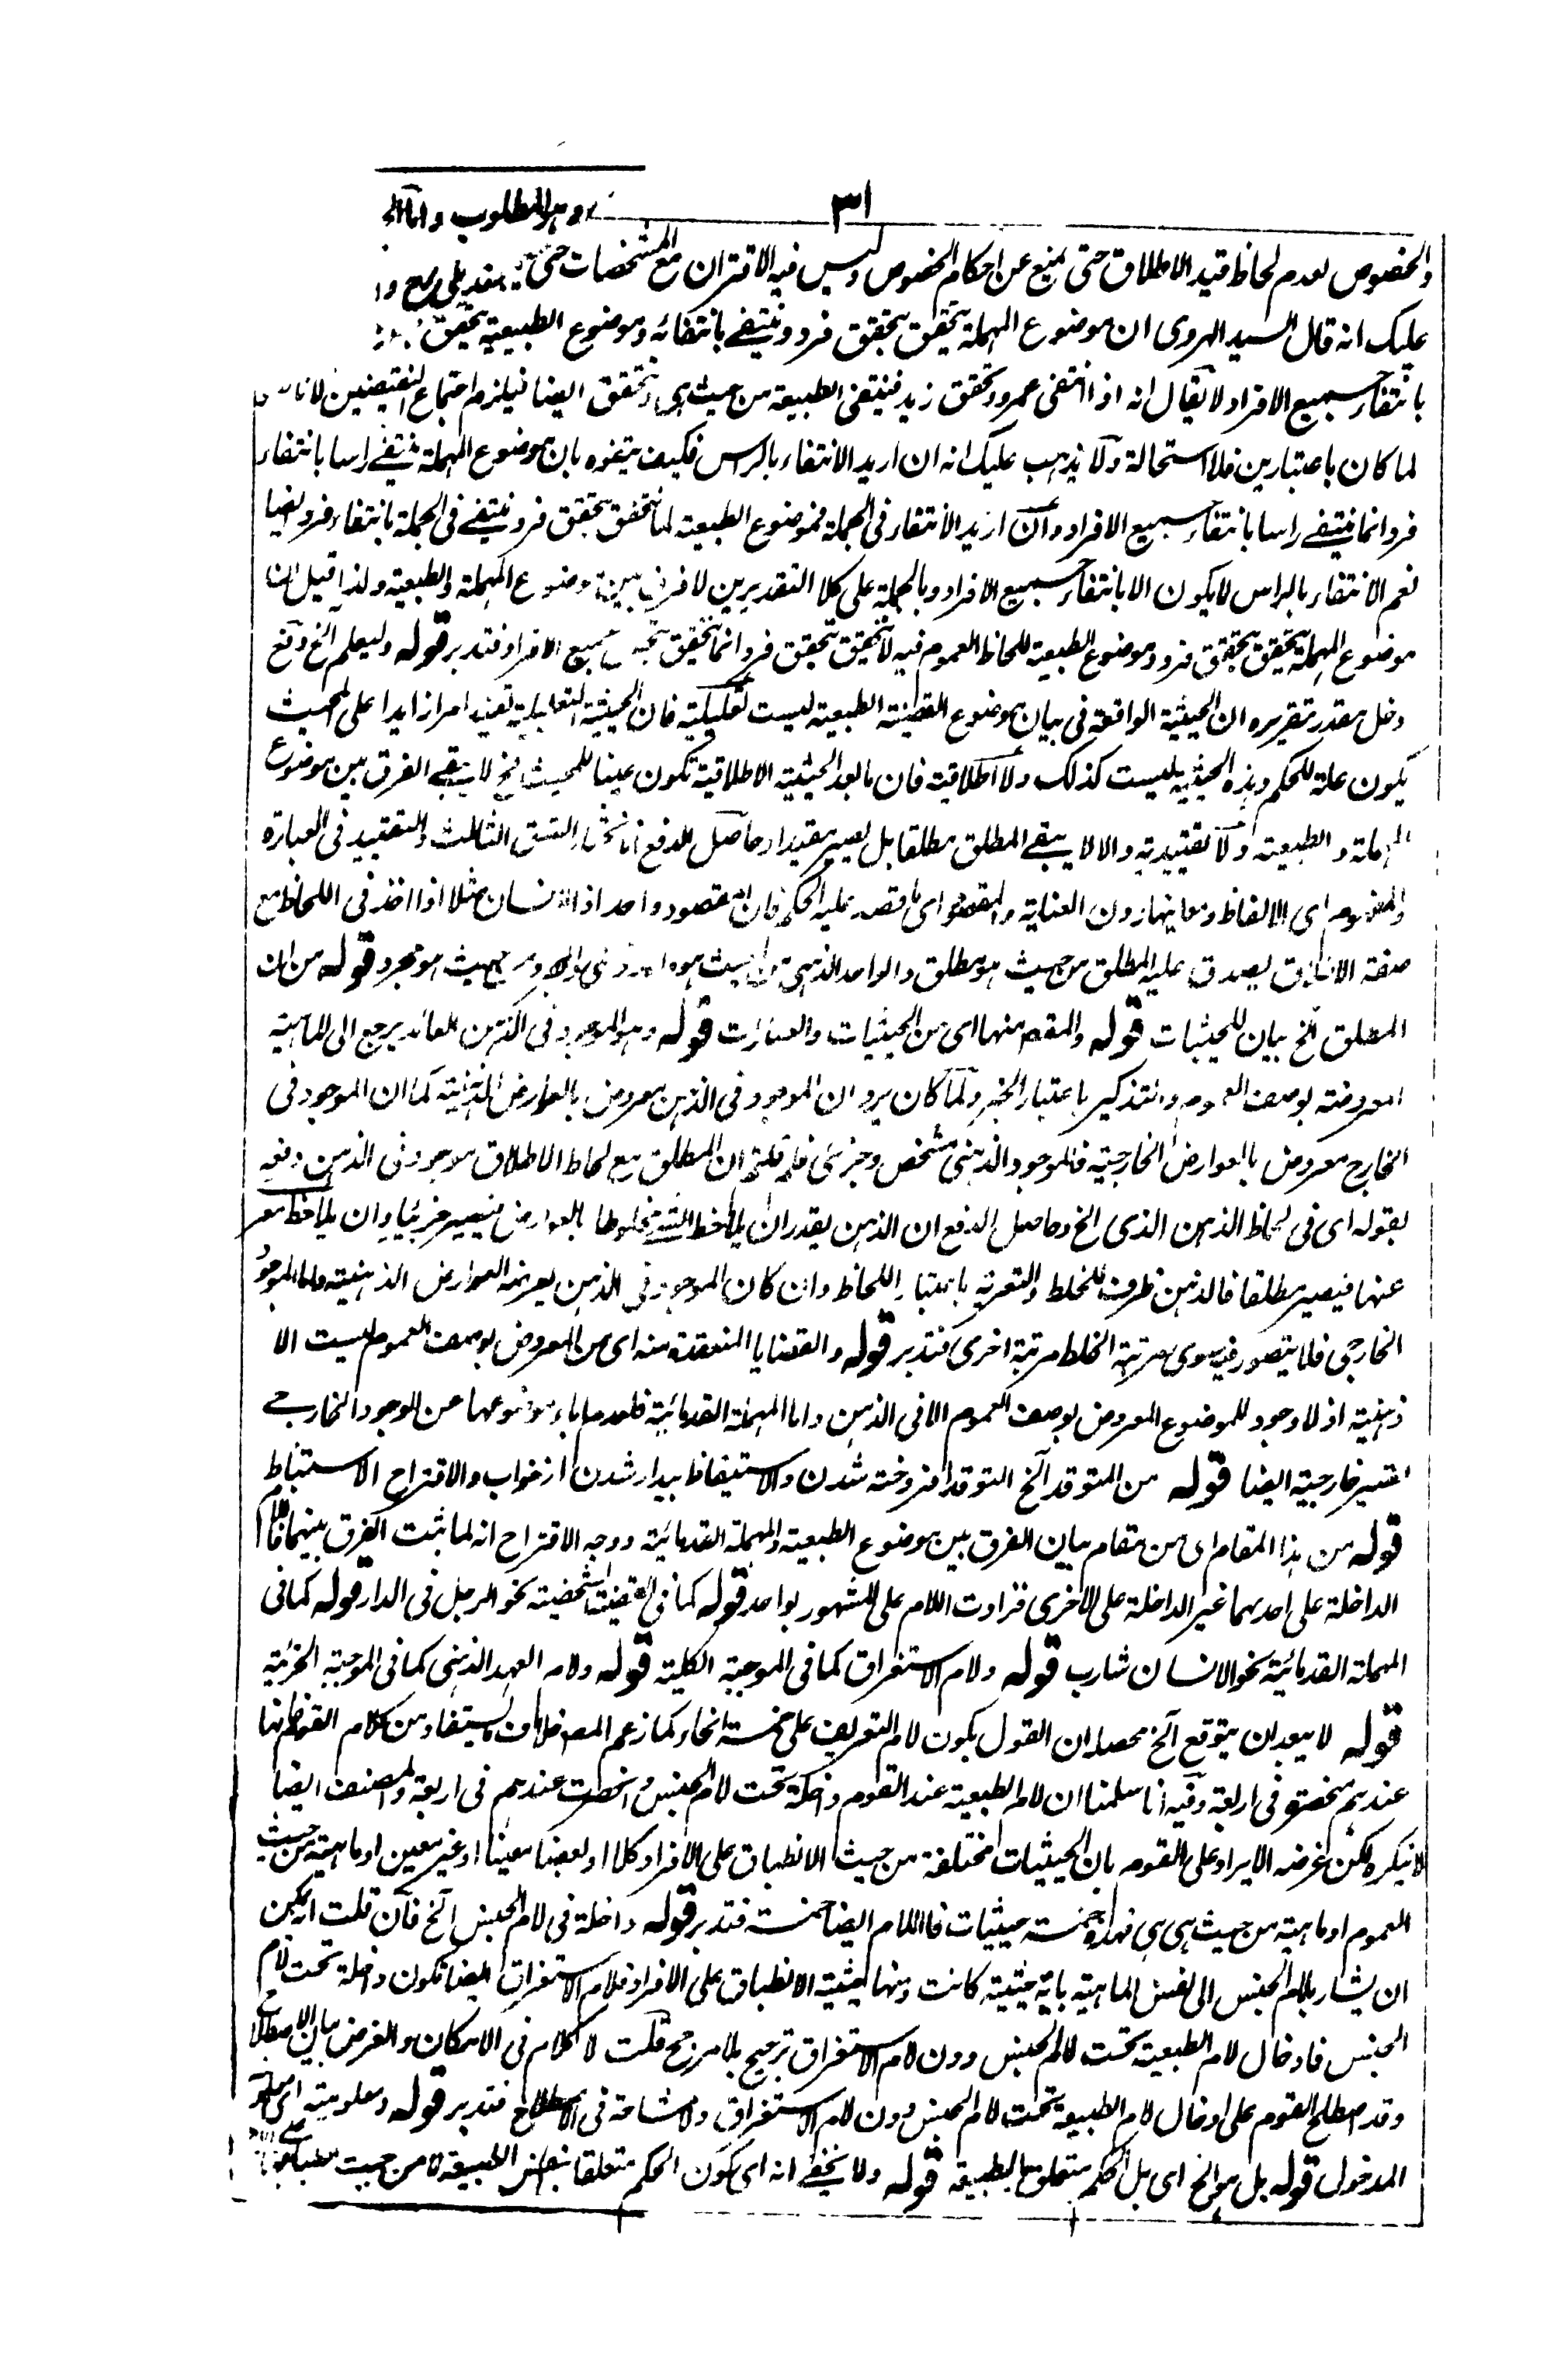 ٣١
وهو المطلوب واما
والخصوص لعدم لحاظ قيد الاطلاق حتى يمنع عن احكام الخصوص وليس فيه الاقتران مع المشخصات حتى
عليك انه قال السيد الهروى ان موضوع المهملة يتحقق بتحقق فرد وينتفى بانتفائه وموضوع الطبيعية يتحقق
بانتفاء جميع الافراد لا يقال انه اذا انتفى عمرو وتحقق زيد فينتفى الطبيعة من حيث هى وتحقق ايضا فيلزم اجتماع النقيضين لانا
لما كان باعتبارين فلا استحالة ولا يذهب عليك انه ان اريد الانتفاء بالراس فكيف يتفوه بان موضوع المهملة ينتفى راسا بانتفاء
فرد انما ينتفى راسا بانتفاء جميع الافراد وان اريد الانتفاء فى الجملة فموضوع الطبيعية لما يتحقق بتحقق فرد ينتفى فى الجملة بانتفاء فرد ايضا
نعم الانتفاء بالراس لا يكون الا بانتفاء جميع الافراد وبالجملة على كلا التقديرين لا فرق بين موضوع المهملة والطبيعية ولذا قيل ان
موضوع المهملة يتحقق بتحقق فرد وموضوع الطبيعية للحاظ العموم فيه لا يتحقق بتحقق فرد انما يتحقق جميع الافراد فتدبر قوله وليعلم الخ دفع
دخل مقدر تقريره ان الحيثية الواقعة فى بيان موضوع القضية الطبيعية ليست تعليلية فان الحيثية التعليلية تفيد امرا زايدا على المحيث
يكون علة للحكم وهذه الحيثية ليست كذلك ولا اطلاقية فان ما بعد الحيثية الاطلاقية تكون عينا للمحيث فح لا يبقى الفرق بين موضوع
المهملة والطبيعية ولا تقييدية والا لا يبقى المطلق مطلقا بل يصير مقيدا وحاصل الدفع انا نختار الشق الثالث والتقييد فى العبارة
والمفهوم اى الالفاظ ومعانيها دون العناية والمقصود اى ما قصد عليه الحكم فان المقصود واحد اذ الانسان مثلا اذا اخذ فى اللحاظ مع
صفة الاطلاق يصدق عليه المطلق من حيث هو مطلق والواحد الذهنى من حيث هو من حيث هو مجرد قوله من ان
المطلق الخ بيان للحيثيات قوله والمقصد منها اى من الحيثيات والعبارات قوله وهو الموجود فى الذهن العائد يرجع الى الماهية
المعروضة بوصف العموم والتذكير باعتبار الخبر ولما كان يرد ان الموجود فى الذهن معروض بالعوارض الذهنية كما ان الموجود فى
الخارج معروض بالعوارض الخارجية فالموجود الذهنى مشخص وجزئى فلم قلتم ان المطلق مع لحاظ الاطلاق موجود فى الذهن دفعه
بقوله اى فى لحاظ الذهن الذى الخ وحاصل الدفع ان الذهن يقدر ان يلاحظ الشئ مخلوطا بالعوارض فيصير جزئيا وان يلاحظ معر
عنها فيصير مطلقا فالذهن ظرف للخلط والتعرية باعتبار اللحاظ وان كان الموجود فى الذهن يعرضه العوارض الذهنية واما الموجود
الخارجى فلا يتصور فيه سوى مرتبة الخلط مرتبة اخرى فتدبر قوله والقضايا المنعقدة منه اى من المعروض بوصف العموم ليست الا
ذهنية اذ لا وجود للموضوع المعروض بوصف العموم الا فى الذهن واما المهملة القدمائية فلعدم اباء موضوعها عن الوجود الخارجى
اعتبر خارجية ايضا قوله من المتوقد الخ التوقد افروخته شدن والاستيقاظ بيدار شدن از خواب والاقتراح الاستنباط
قوله من هذا المقام اى من مقام بيان الفرق بين موضوع الطبيعية والمهملة القدمائية ووجه الاقتراح انه لما ثبت الفرق بينهما فاللام
الداخلة على احدهما غير الداخلة على الاخرى فزادت اللام على المشهور بواحد قوله كما فى القضية الشخصية نحو الرجل فى الدار قوله كما فى
المهملة القدمائية نحو الانسان شارب قوله ولام الاستغراق كما فى الموجبة الكلية قوله ولام العهد الذهنى كما فى الموجبة الجزئية
قوله لا يبعد ان يتوقع الخ محصله ان القول بكون لام التعريف على خمسة انحاء كما زعم المصنف خلاف ما يستفاد من كلام القوم فانها
عندهم منحصرة فى اربعة وفيه انا سلمنا ان لام الطبيعية عند القوم داخلة تحت لام الجنس وانحصرت عندهم فى اربعة والمصنف ايضا
لا ينكره لكن غرضه الايراد على القوم بان الحيثيات مختلفة من حيث الانطباق على الافراد كلا او بعضا معينا او غير معين او ماهية من حيث
العموم او ماهية من حيث هى هى فهذه خمسة حيثيات فاللام ايضا خمسة فتدبر قوله داخلة فى لام الجنس الخ فان قلت انه يمكن
ان يشار بلام الجنس الى نفس الماهية باية حيثية كانت ومنها حيثية الانطباق على الافراد فلام الاستغراق ايضا تكون داخلة تحت لام
الجنس فادخال لام الطبيعية تحت لام الجنس دون لام الاستغراق ترجيح بلا مرجح قلت لا كلام فى الامكان والغرض بيان الاصطلاح
وقد اصطلح القوم على ادخال لام الطبيعية تحت لام الجنس دون لام الاستغراق ولا مشاحة فى الاصطلاح فتدبر قوله ومعلومية اى معلومية
المدخول قوله بل هو الخ اى بل الحكم متعلق بالطبيعة قوله ولا يخفى انه اى يكون الحكم متعلقا بنفس الطبيعة لا من حيث